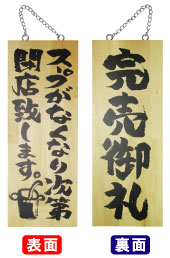 スープがなくなり次第
閉店致します。
完売御礼
表面
裏面